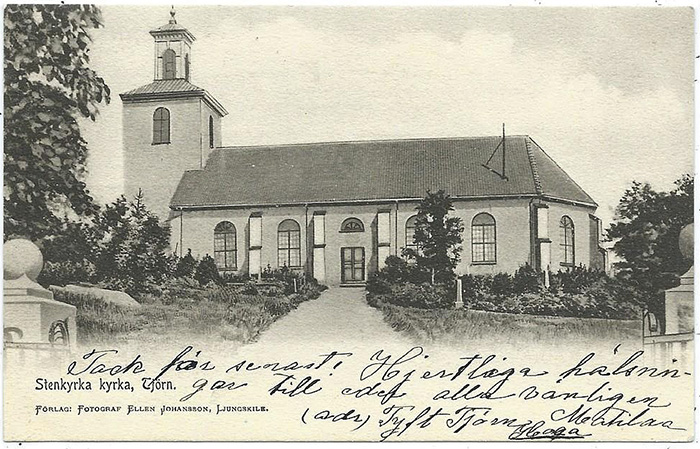 Tack för senast! Hjertliga hälsnin-
gar till eder alla vänligen
(adr) Tyft Tjörn Matilda
Haga
Stenkyrka kyrka, Tjörn.
Förlag: Fotograf Ellen Johansson, Ljungskile.